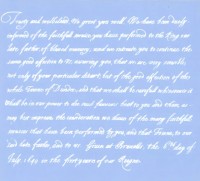 Trusty and wellbeloved We greet you well. We have been duely
informed of the faithfull service you have performed to the King our
late father of blessed memory; and we intreate you to continue the
same good affection to us, assuring you, that we are, very sensible,
not only of your particular but of the good affection of the
whole Towne of and that we shall be carefull whensoever it
shall be in our power to do the most favour both to you and them, as
may best expresse the consideration we have of the many faithfull
services that have been performed by you, and that Towne, to our
said late father, and to us. Given at the 6th day of
July 1649 in the first yeare of our Reigne.